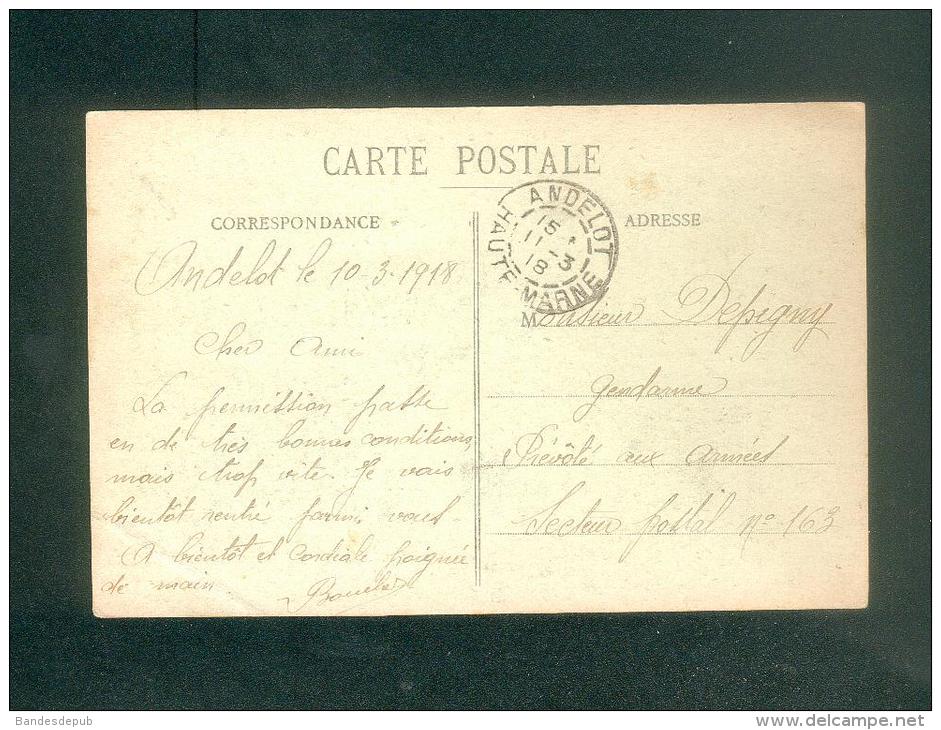 CARTE POSTALE
CORRESPONDANCE
Andelot le 10-3-1918
Cher Ami
La permission passe
en de très bonnes conditions,
mais trop vite. Je vais
bientôt rentré parmi vous.
A bientôt et Cordiale poignée
de main.
ANDELOT
15
11-3
18
HAUTE-MARNE
ADRESSE
Monsieur Depigny
Gendarme
Prévôté aux armées
Secteur postal no 163
Bandesdepub
www.delcampe.net